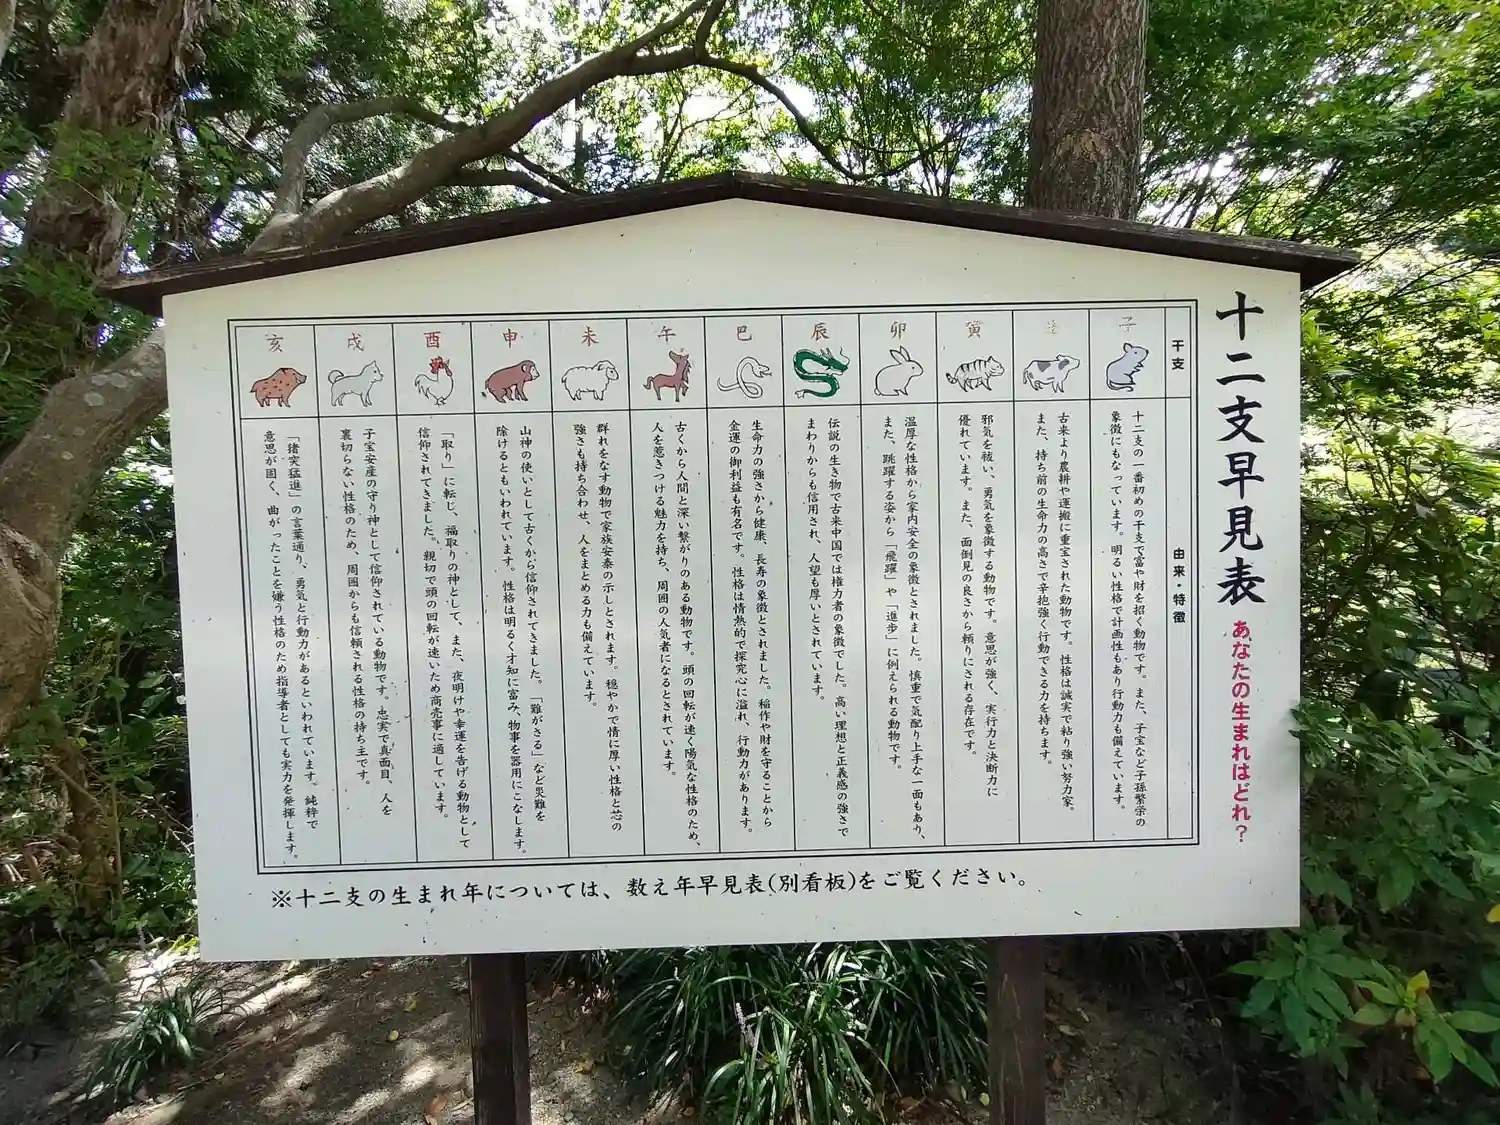 十二支早見表
あなたの生まれはどれ?
干支
由来・特徴
子
十二支の一番初めの干支で富や財を招く動物です。また、子宝など子孫繁栄の
象徴にもなっています。明るい性格で計画性もあり行動力も備えています。
丑
古来より農耕や運搬に重宝された動物です。性格は誠実で粘り強い努力家。
また、持ち前の生命力の高さで辛抱強く行動できる力を持ちます。
寅
邪気を祓い、勇気を象徴する動物です。意思が強く、実行力と決断力に
優れています。また、面倒見の良さから頼りにされる存在です。
卯
温厚な性格から家内安全の象徴とされました。慎重で気配り上手な一面もあり、
また、跳躍する姿から「飛躍」や「進歩」に例えられる動物です。
辰
伝説の生き物で古来中国では権力者の象徴でした。高い理想と正義感の強さで
まわりからも信用され、人望も厚いとされています。
巳
生命力の強さから健康、長寿の象徴とされました。稲作や財を守ることから
金運の御利益も有名です。性格は情熱的で探究心に溢れ、行動力があります。
午
古くから人間と深い繋がりのある動物です。頭の回転が速く陽気な性格のため、
人を惹きつける魅力を持ち、周囲の人気者になるとされています。
未
群れをなす動物で家族安泰の示しとされます。穏やかで情に厚い性格と芯の
強さも持ち合わせ、人をまとめる力も備えています。
申
山神の使いとして古くから信仰されてきました。「難がさる」など災難を
除けるともいわれています。性格は明るく才知に富み、物事を器用にこなします。
酉
「取り」に転じ、福取りの神として、また、夜明けや幸運を告げる動物として
信仰されてきました。親切で頭の回転が速いため商売事に適しています。
戌
子宝安産の守り神として信仰されている動物です。忠実で真面目、人を
裏切らない性格のため、周囲からも信頼される性格の持ち主です。
亥
「猪突猛進」の言葉通り、勇気と行動力があるといわれています。純粋で
意思が固く、曲がったことを嫌う性格のため指導者としても実力を発揮します。
※十二支の生まれ年については、数え年早見表(別看板)をご覧ください。